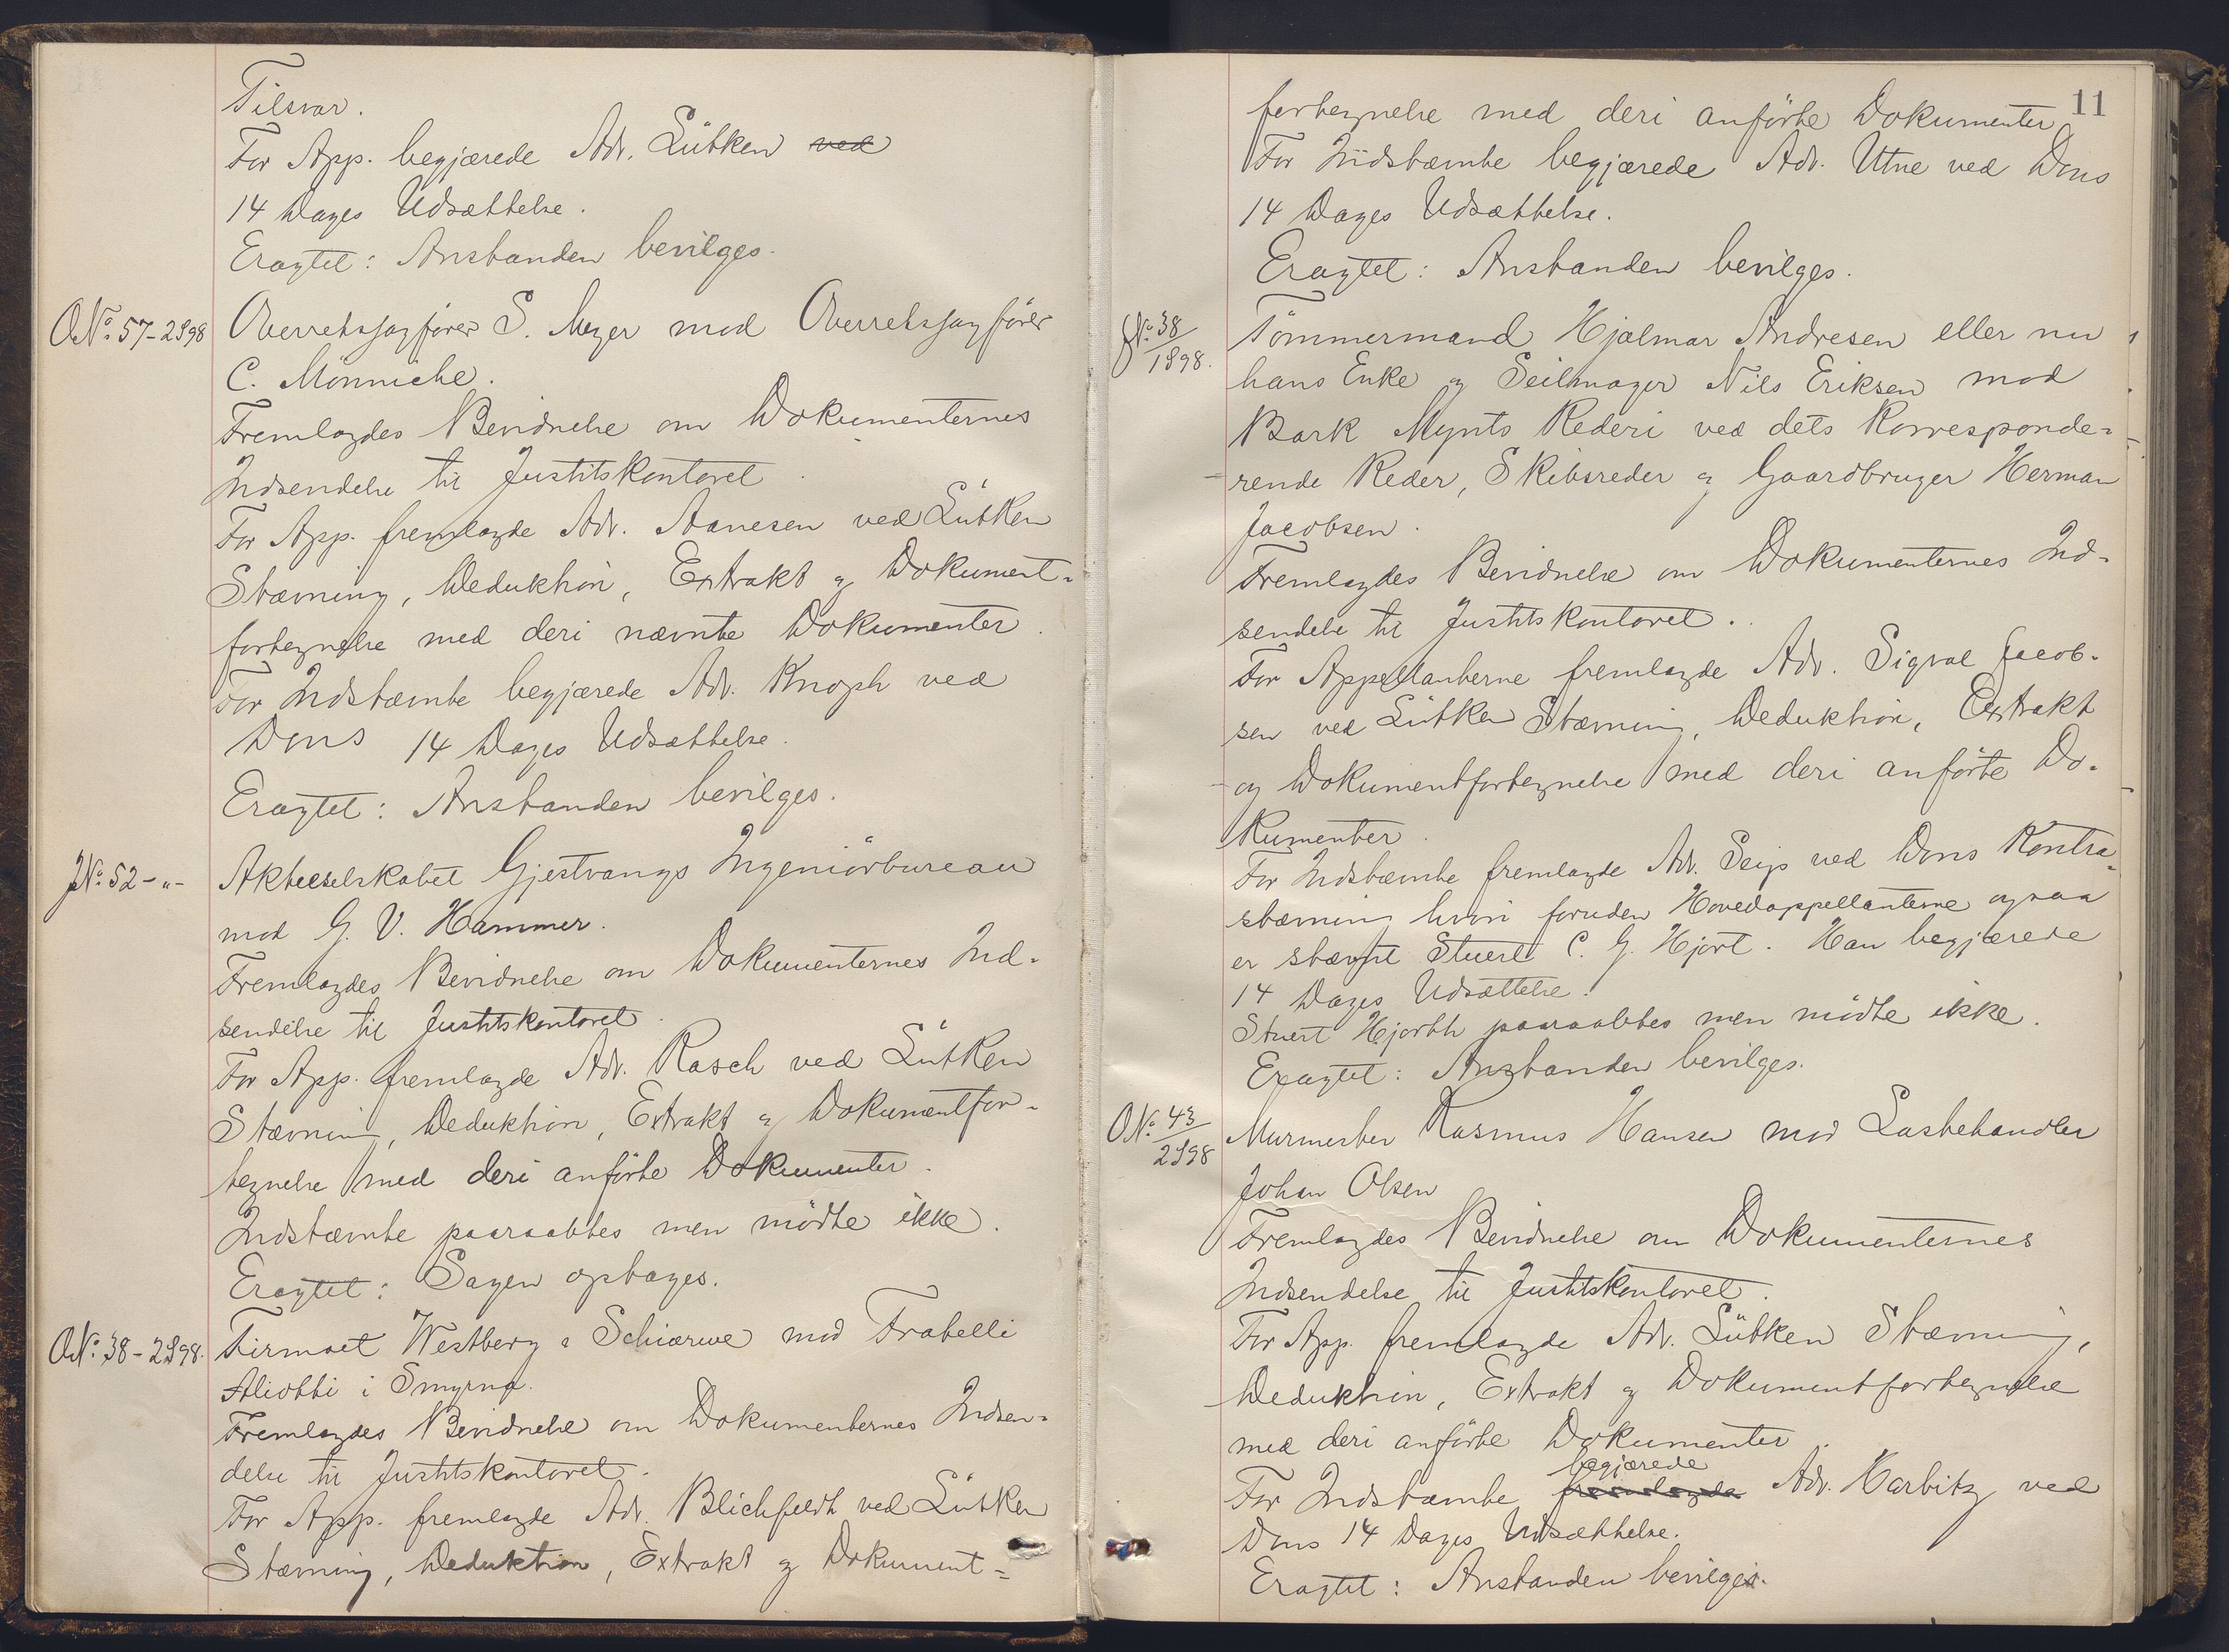 Tilsvar.
For App. begjærede Adv. Lütken ved
14 Dages Udsættelse.
Eragtet: Anstanden bevilges.
O.№ 57-2S98 Overretssagfører S. Meyer mod Overretssagfører
C. Mönniche.
Fremlagdes Bevidnelse om Dokumenternes
Indsendelse til Justitskontoret.
For App. fremlagde Adv. Aanesen ved Lütken
Stævning, Deduktion, Extrakt og Dokument-
fortegnelse med deri nævnte Dokumenter.
For Indstævnte begjærede Adv. Knoph ved
Dons 14 Dages Udsættelse.
Eragtet: Anstanden bevilges.
J№ 52-"- Aktieselskabet Gjestvangs Ingeniörbureau
mod G. V. Hammer.
Fremlagdes Bevidnelse om Dokumenternes Ind-
sendelse til Justitskontoret.
For App. fremlagde Adv. Rasch ved Lütken
Stævning, Deduktion, Extrakt og Dokumentfor-
tegnelse med deri anförte Dokumenter.
Indstævnte paaraabtes men mödte ikke.
Eragtet: Sagen optages.
O.№ 38-2S98. Firmaet Westberg & Schiærwe mod Fratelli
Aliotti i Smyrna.
Fremlagdes Bevidnelse om Dokumenternes Indsen-
delse til Justitskontoret.
For App. fremlagde Adv. Blichfeldt ved Lütken
Stævning, Deduktion, Extrakt og Dokument-
11
fortegnelse med deri anförte Dokumenter.
For Indstævnte begjærede Adv. Utne ved Dons
14 Dages Udsættelse.
Eragtet: Anstanden bevilges.
J№ 38/1S98. Tömmermand Hjalmar Andresen eller nu
hans Enke og Seilmager Nils Eriksen mod
Bark Mynts Rederi ved dets Korresponde-
rende Reder, Skibsreder og Gaardbruger Herman
Jacobsen.
Fremlagdes Bevidnelse om Dokumenternes Ind-
sendelse til Justitskontoret.
For Appellanterne fremlagde Adv. Sigval Jacob-
sen ved Lütken Stævning, Deduktion, Extrakt
og Dokumentfortegnelse med deri anförte Do-
kumenter.
For Indstævnte fremlagde Adv. Seip ved Dons Kontra-
stævning hvori foruden Hovedappellanterne ogsaa
er stævnt Stuert C. G. Hjort. Han begjærede
14 Dages Udsættelse.
Stuert Hjorth paaraabtes men mödte ikke.
Eragtet: Anstanden bevilges.
O№ 43/2S98 Murmester Rasmus Hansen mod Lastehandler
Johan Olsen
Fremlagdes Bevidnelse om Dokumenternes
Indsendelse til Justitskontoret.
For App. fremlagde Adv. Lütken Stævning,
Deduktion, Extrakt og Dokumentfortegnelse
med deri anförte Dokumenter.
begjærede
For Indstævnte fremlagde Adv. Harbitz ved
Dons 14 Dages Udsættelse.
Eragtet: Anstanden bevilges.